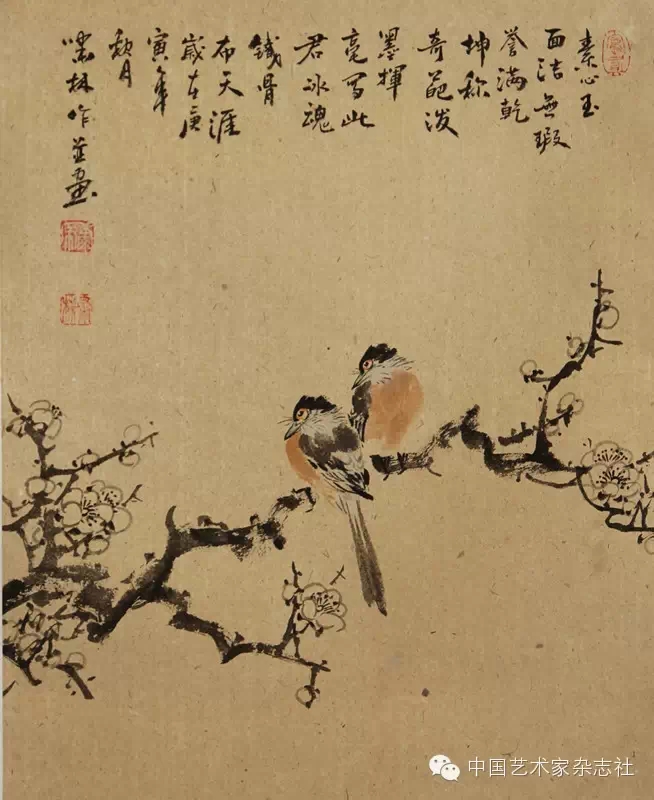 素心玉
面洁無瑕
誉满乾
坤称
奇葩泼
墨揮
毫写此
君冰魂
鐵骨
布天涯
歲在庚
寅年
秋月
啸林作並画
中国艺术家杂志社